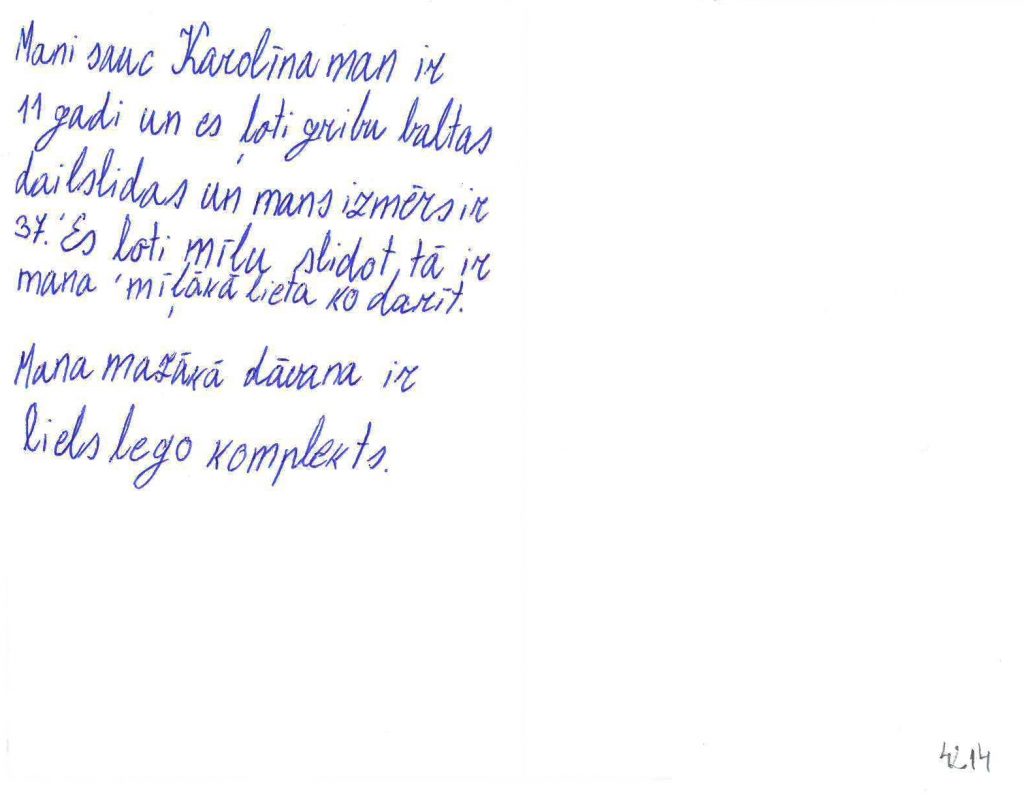 Mani sauc Karolīna man ir
11 gadi un es ļoti gribu baltas
dailslidas un mans izmērs ir
37. Es ļoti mīlu slidot, tā ir
mana mīļākā lieta ko darīt.
Mana mazākā dāvana ir
liels lego komplekts.
4214